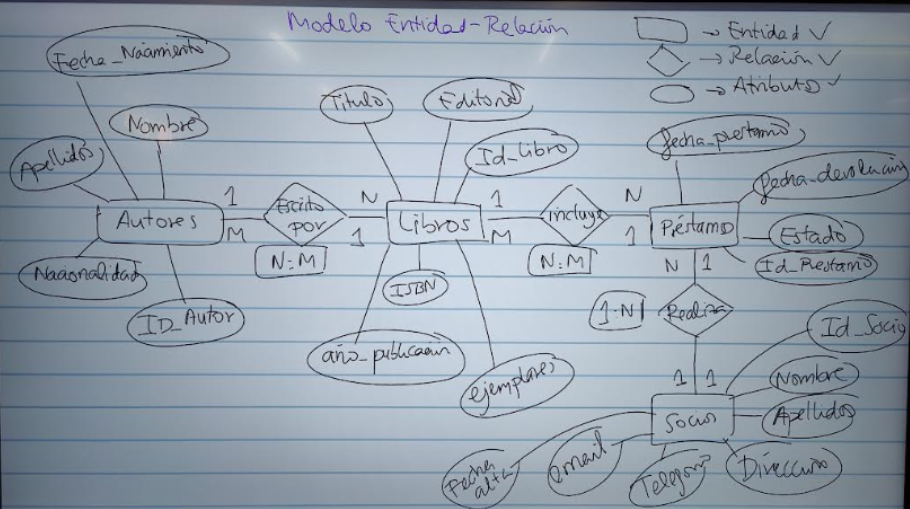 Modelo Entidad-Relación
→ Entidad ✓
→ Relación ✓
→ Atributo ✓
Fecha_Nacimiento
Nombre
Apellidos
Autores
Nacionalidad
ID_Autor
1
M
Escrito
por
N:M
N
1
Titulo
Editorial
Id_Libro
Libros
ISBN
año_publicación
ejemplares
1
M
incluye
N:M
N
1
fecha_prestamo
fecha_devolución
Préstamo
Estado
Id_Prestamo
N 1
1:N
Realiza
1 1
Id_Socio
Nombre
Socios
Apellidos
Dirección
Telefono
email
Fecha
alta